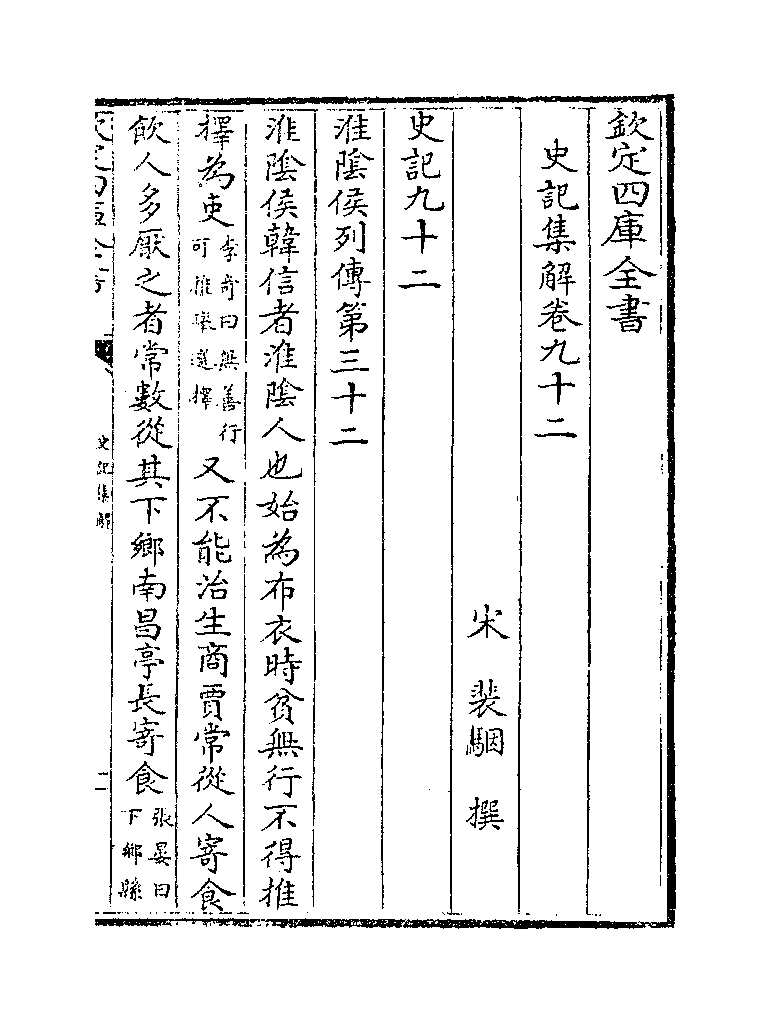 欽定四庫全書
史記集解卷九十二
宋 裴駰 撰
史記九十二
淮陰侯列傳第三十二
淮陰侯韓信者淮陰人也始為布衣時貧無行不得推
擇為吏李奇曰無善行可推舉選擇又不能治生商賈常從人寄食
飲人多厭之者常數從其下鄉南昌亭長寄食張晏曰下鄉縣
史記集解